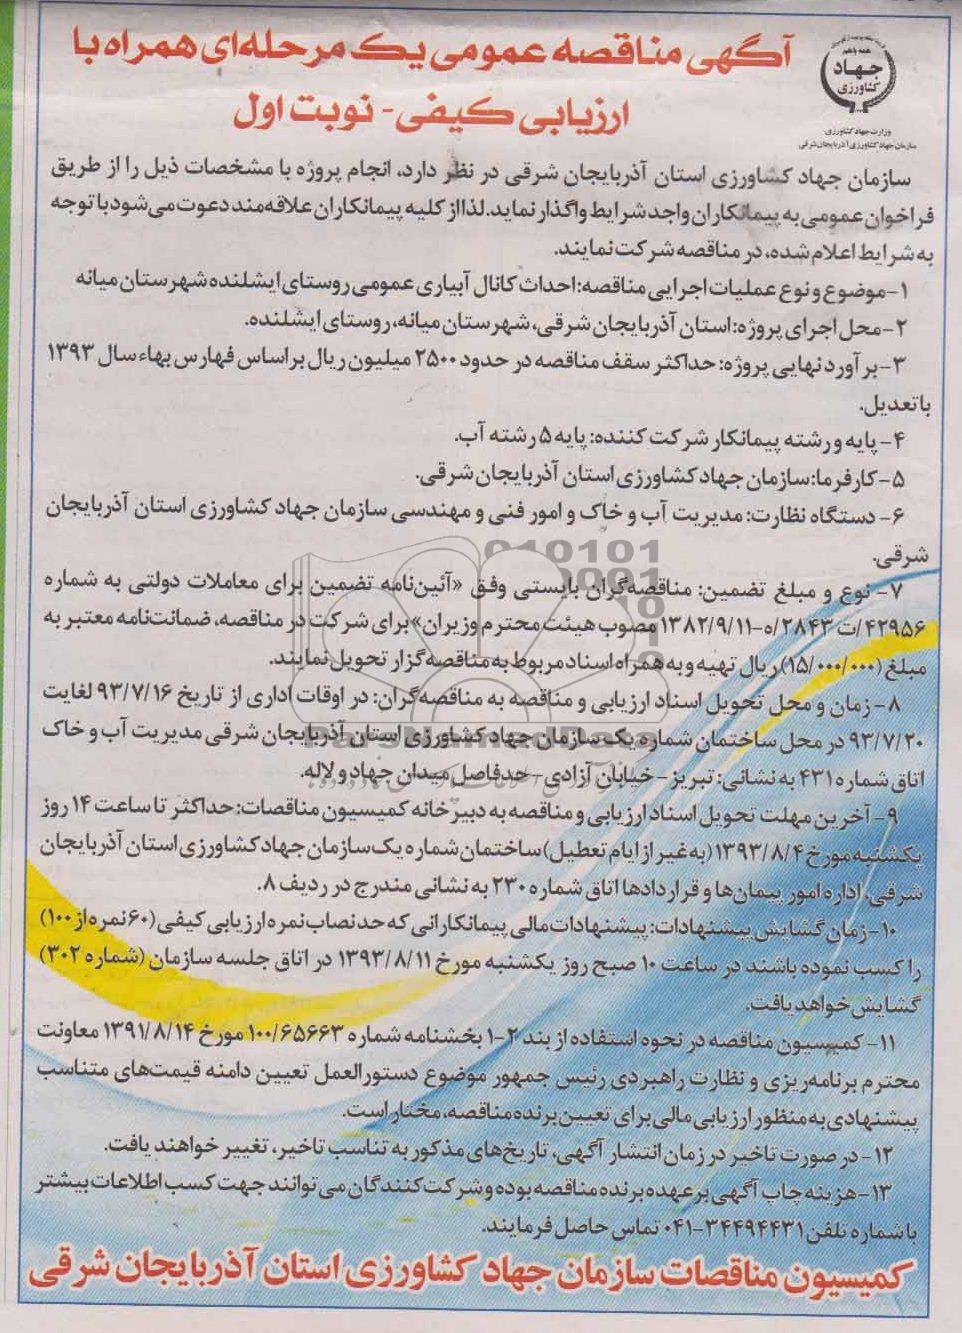 آگهی مناقصه عمومی یک مرحله‌ای همراه با
ارزیابی کیفی- نوبت اول
همه با هم
جهاد
کشاورزی
وزارت جهاد کشاورزی
سازمان جهاد کشاورزی آذربایجان شرقی
سازمان جهاد کشاورزی استان آذربایجان شرقی در نظر دارد، انجام پروژه با مشخصات ذیل را از طریق
فراخوان عمومی به پیمانکاران واجد شرایط واگذار نماید. لذا از کلیه پیمانکاران علاقه‌مند دعوت می‌شود با توجه
به شرایط اعلام شده، در مناقصه شرکت نمایند.
۱-موضوع و نوع عملیات اجرایی مناقصه: احداث کانال آبیاری عمومی روستای ایشلنده شهرستان میانه
۲-محل اجرای پروژه: استان آذربایجان شرقی، شهرستان میانه، روستای ایشلنده.
۳-برآورد نهایی پروژه: حداکثر سقف مناقصه در حدود ۲۵۰۰ میلیون ریال براساس فهارس بهاء سال ۱۳۹۳
با تعدیل.
۴- پایه و رشته پیمانکار شرکت کننده: پایه ۵ رشته آب.
۵-کارفرما: سازمان جهاد کشاورزی استان آذربایجان شرقی.
۶- دستگاه نظارت: مدیریت آب و خاک و امور فنی و مهندسی سازمان جهاد کشاورزی استان آذربایجان
شرقی.
۷- نوع و مبلغ تضمین: مناقصه‌گران بایستی وفق «آئین‌نامه تضمین برای معاملات دولتی به شماره
۴۲۹۵۶/ت۲۸۴۳/ه-۱۳۸۲/۹/۱۱ مصوب هیئت محترم وزیران» برای شرکت در مناقصه، ضمانت‌نامه معتبر به
مبلغ (۱۵/۰۰۰/۰۰۰) ریال تهیه و به همراه اسناد مربوط به مناقصه‌گزار تحویل نمایند.
۸- زمان و محل تحویل اسناد ارزیابی و مناقصه به مناقصه‌گران: در اوقات اداری از تاریخ ۹۳/۷/۱۶ لغایت
۹۳/۷/۲۰ در محل ساختمان شماره یک سازمان جهاد کشاورزی استان آذربایجان شرقی مدیریت آب و خاک
اتاق شماره ۴۳۱ به نشانی: تبریز - خیابان آزادی - حدفاصل میدان جهاد و لاله.
۹- آخرین مهلت تحویل اسناد ارزیابی و مناقصه به دبیرخانه کمیسیون مناقصات: حداکثر تا ساعت ۱۴ روز
یکشنبه مورخ ۱۳۹۳/۸/۴ (به غیر از ایام تعطیل) ساختمان شماره یک سازمان جهاد کشاورزی استان آذربایجان
شرقی، اداره امور پیمان‌ها و قراردادها اتاق شماره ۲۳۰ به نشانی مندرج در ردیف ۸.
۱۰-زمان گشایش پیشنهادات: پیشنهادات مالی پیمانکارانی که حد نصاب نمره ارزیابی کیفی (۶۰ نمره از ۱۰۰)
را کسب نموده باشند در ساعت ۱۰ صبح روز یکشنبه مورخ ۱۳۹۳/۸/۱۱ در اتاق جلسه سازمان (شماره ۳۰۲)
گشایش خواهد یافت.
۱۱- کمیسیون مناقصه در نحوه استفاده از بند ۲-۱ بخشنامه شماره ۱۰۰/۶۵۶۶۳ مورخ ۱۳۹۱/۸/۱۴ معاونت
محترم برنامه‌ریزی و نظارت راهبردی رئیس جمهور موضوع دستورالعمل تعیین دامنه قیمت‌های متناسب
پیشنهادی به منظور ارزیابی مالی برای تعیین برنده مناقصه، مختار است.
۱۲- در صورت تاخیر در زمان انتشار آگهی، تاریخ‌های مذکور به تناسب تاخیر، تغییر خواهند یافت.
۱۳-هزینه چاپ آگهی بر عهده برنده مناقصه بوده و شرکت‌کنندگان می‌توانند جهت کسب اطلاعات بیشتر
با شماره تلفن ۳۴۴۹۴۴۳۱-۰۴۱ تماس حاصل فرمایند.
کمیسیون مناقصات سازمان جهاد کشاورزی استان آذربایجان شرقی